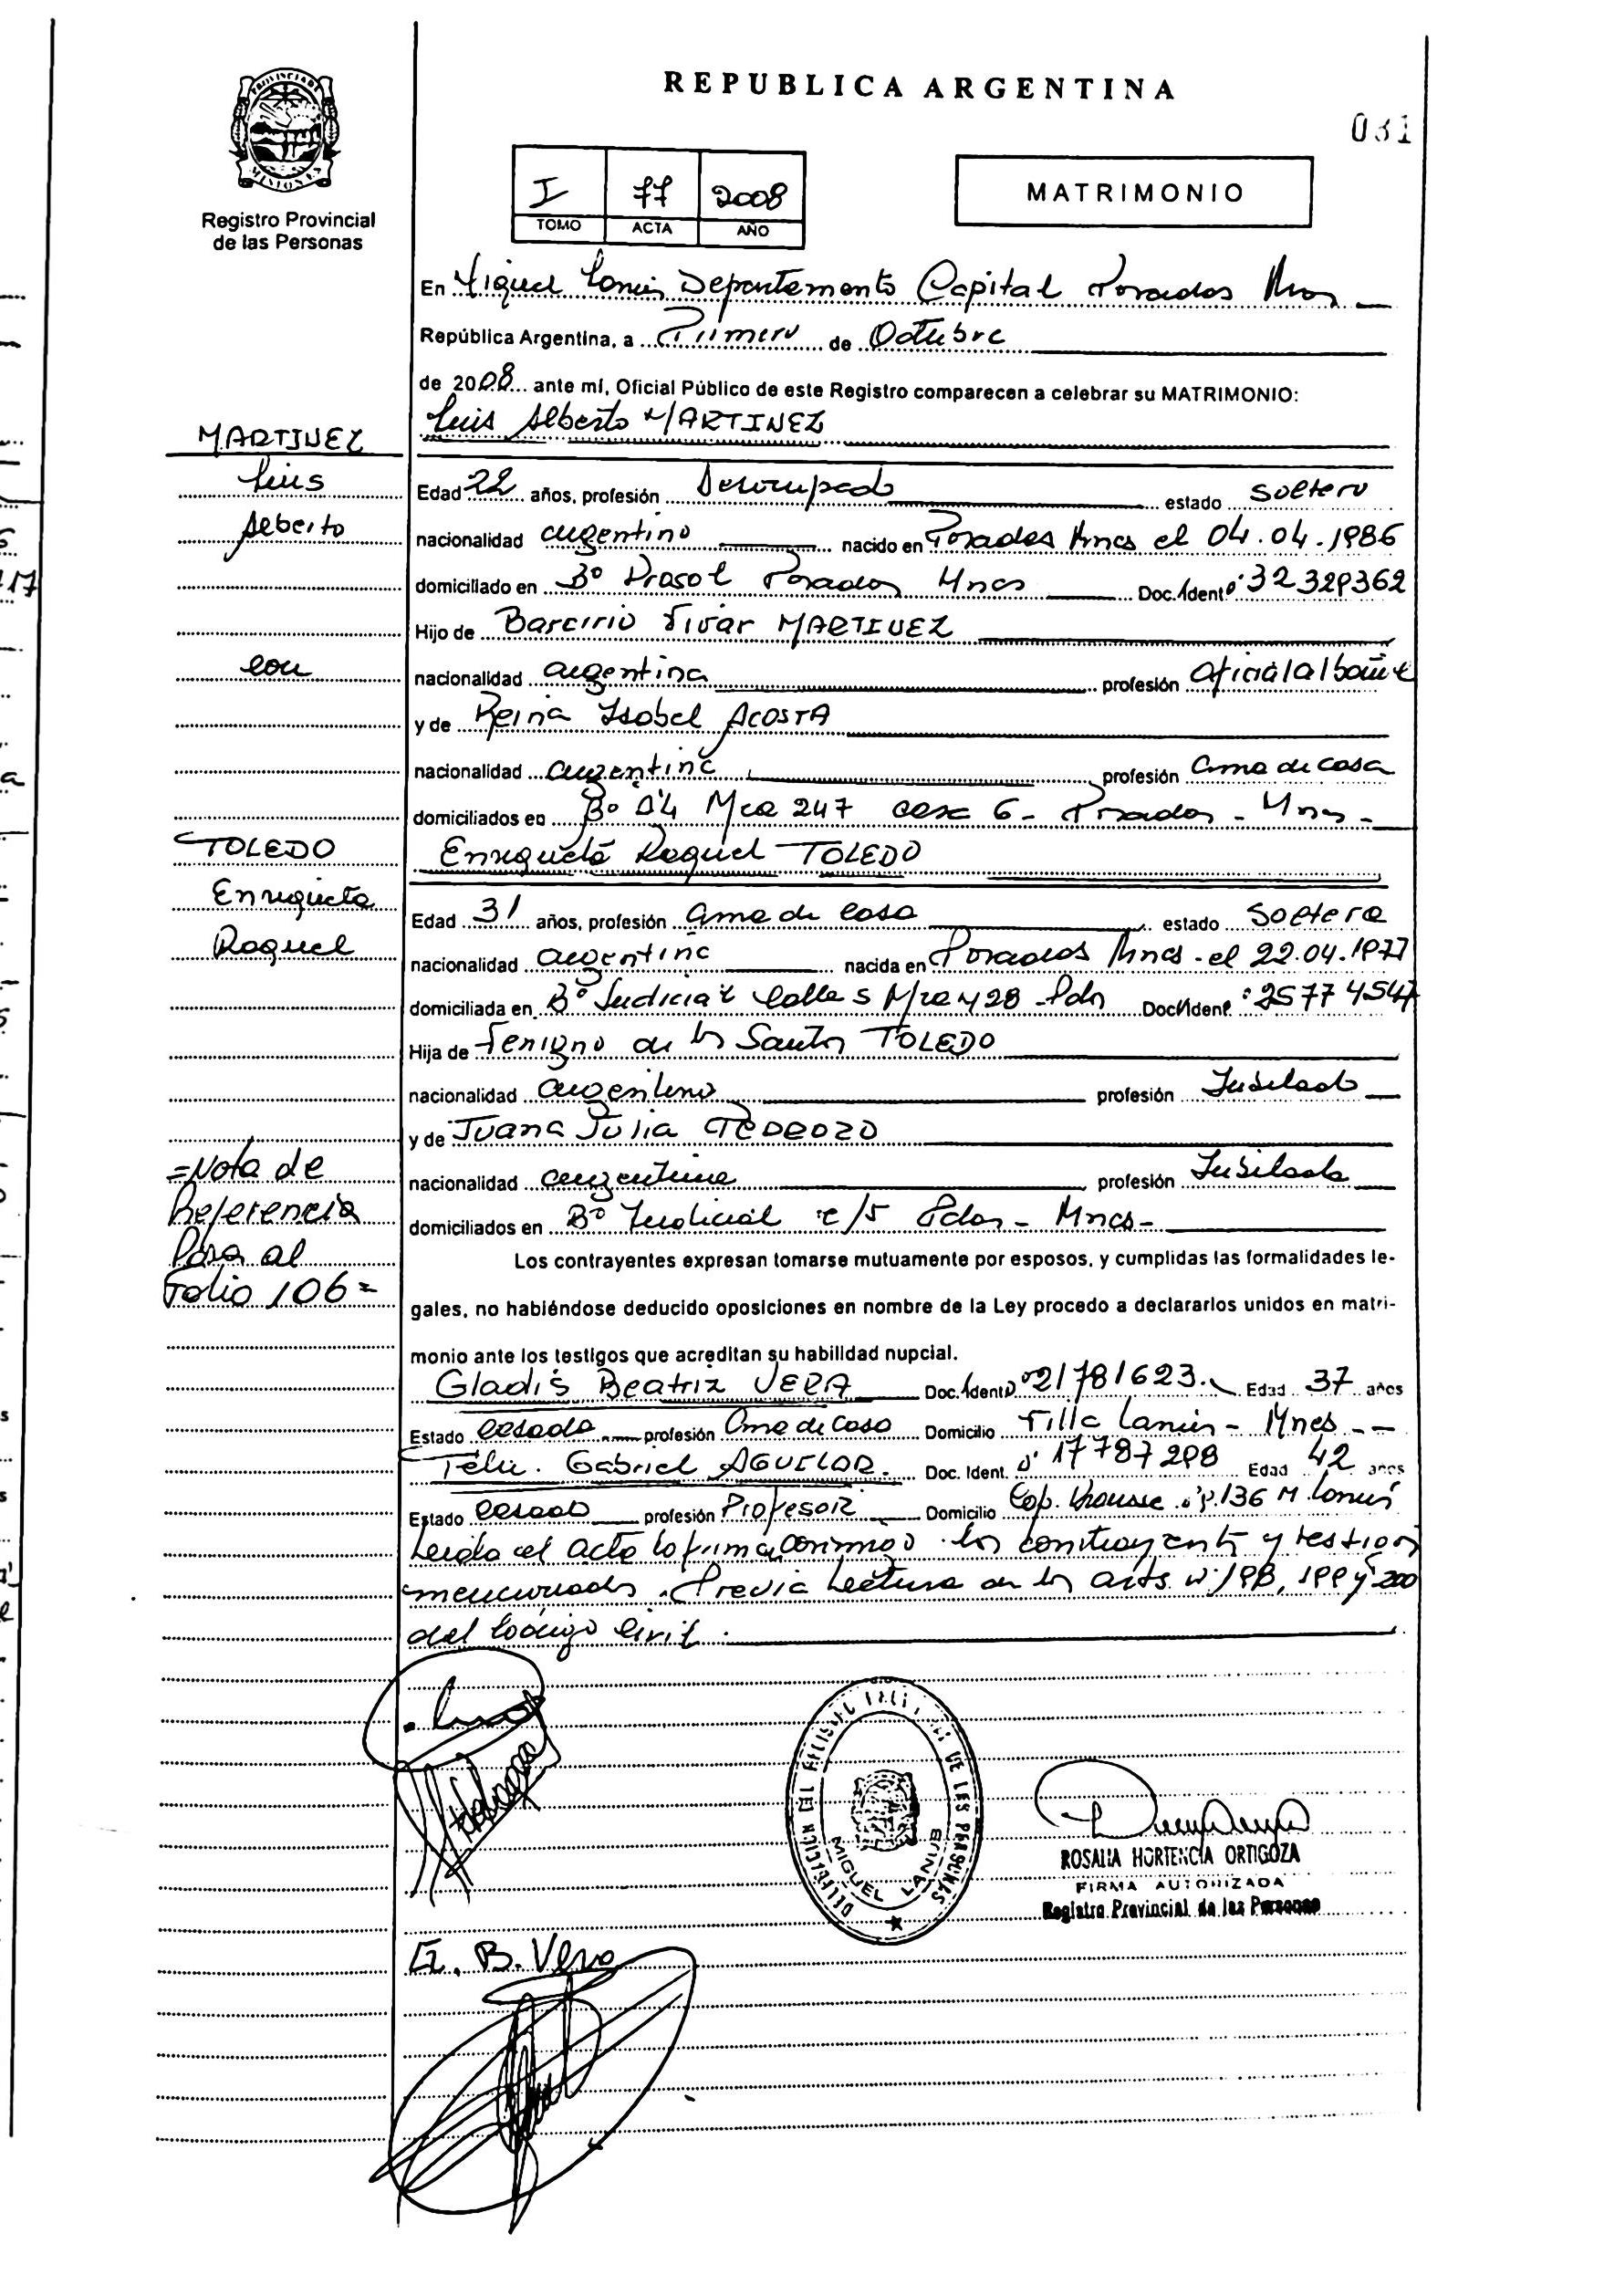 REPUBLICA ARGENTINA
031
PROVINCIA DE
MISIONES
Registro Provincial
de las Personas
I 77 2008
TOMO ACTA AÑO
MATRIMONIO
En Miguel Lanús Departamento Capital Posadas Mnes
República Argentina, a Primero de Octubre
de 2008 ante mí, Oficial Público de este Registro comparecen a celebrar su MATRIMONIO:
Luis Alberto MARTINEZ
MARTINEZ
Luis
Alberto
con
Edad 22 años, profesión Desocupado estado Soltero
nacionalidad argentino nacido en Posadas Mnes el 04.04.1986
domiciliado en Bº Prosol Posadas Mnes Doc. Ident. 32329362
Hijo de MARTINEZ
nacionalidad argentina profesión oficial albañil
y de Reina Isabel ACOSTA
nacionalidad argentina profesión ama de casa
domiciliados en Bº A4 Mza 247 casa 6 - Posadas - Mnes -
Enriqueta Raquel TOLEDO
TOLEDO
Enriqueta
Raquel
Edad 31 años, profesión ama de casa estado Soltera
nacionalidad argentina nacida en Posadas Mnes - el 22.04.1977
domiciliada en Bº Judicial Calle 5 Mza 428 - Pdas Doc. Ident. 25774547
Hija de de los Santos TOLEDO
nacionalidad argentino profesión Jubilado
y de Juana Julia PEDROZO
nacionalidad argentina profesión Jubilada
domiciliados en Bº Judicial c/5 Pdas - Mnes -
=Nota de
Referencia
Pasa al
Folio 106=
Los contrayentes expresan tomarse mutuamente por esposos, y cumplidas las formalidades le-
gales, no habiéndose deducido oposiciones en nombre de la Ley procedo a declararlos unidos en matri-
monio ante los testigos que acreditan su habilidad nupcial.
Gladis Beatriz VERA Doc. Ident. 21781623 Edad 37 años
Estado casada profesión Ama de Casa Domicilio Villa Lanús - Mnes - -
Gabriel AGUILAR Doc. Ident. 17787298 Edad 42 años
Estado casado profesión Profesor Domicilio Cap. Krausse 136 M. Lanús
Leída el acta la firman conmigo los contrayentes y testigos
mencionados. Previa Lectura de los arts Nº 198, 199 y 200
del Código Civil.
DELEGACION DEL REGISTRO PROVINCIAL DE LAS PERSONAS
MIGUEL LANUS
ROSALIA HORTENCIA ORTIGOZA
FIRMA AUTORIZADA
Registro Provincial de las Personas
G. B. Vera